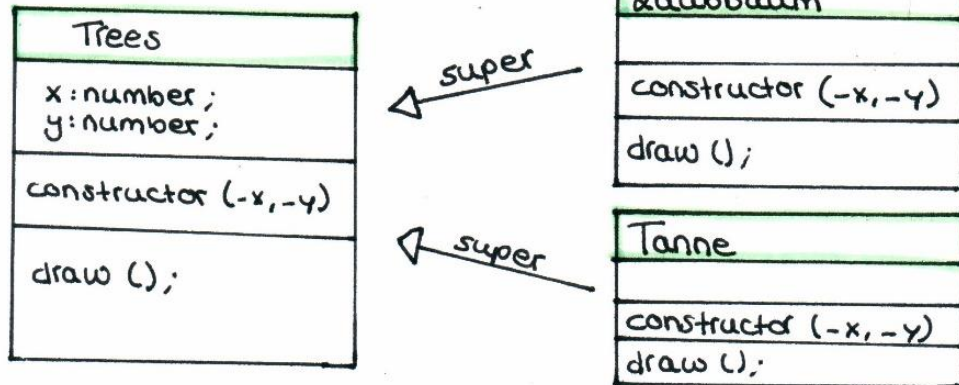 Trees
x:number;
y:number;
constructor (-x,-y)
draw ();
super
super
constructor (-x,-y)
draw ();
Tanne
constructor (-x, -y)
draw ();